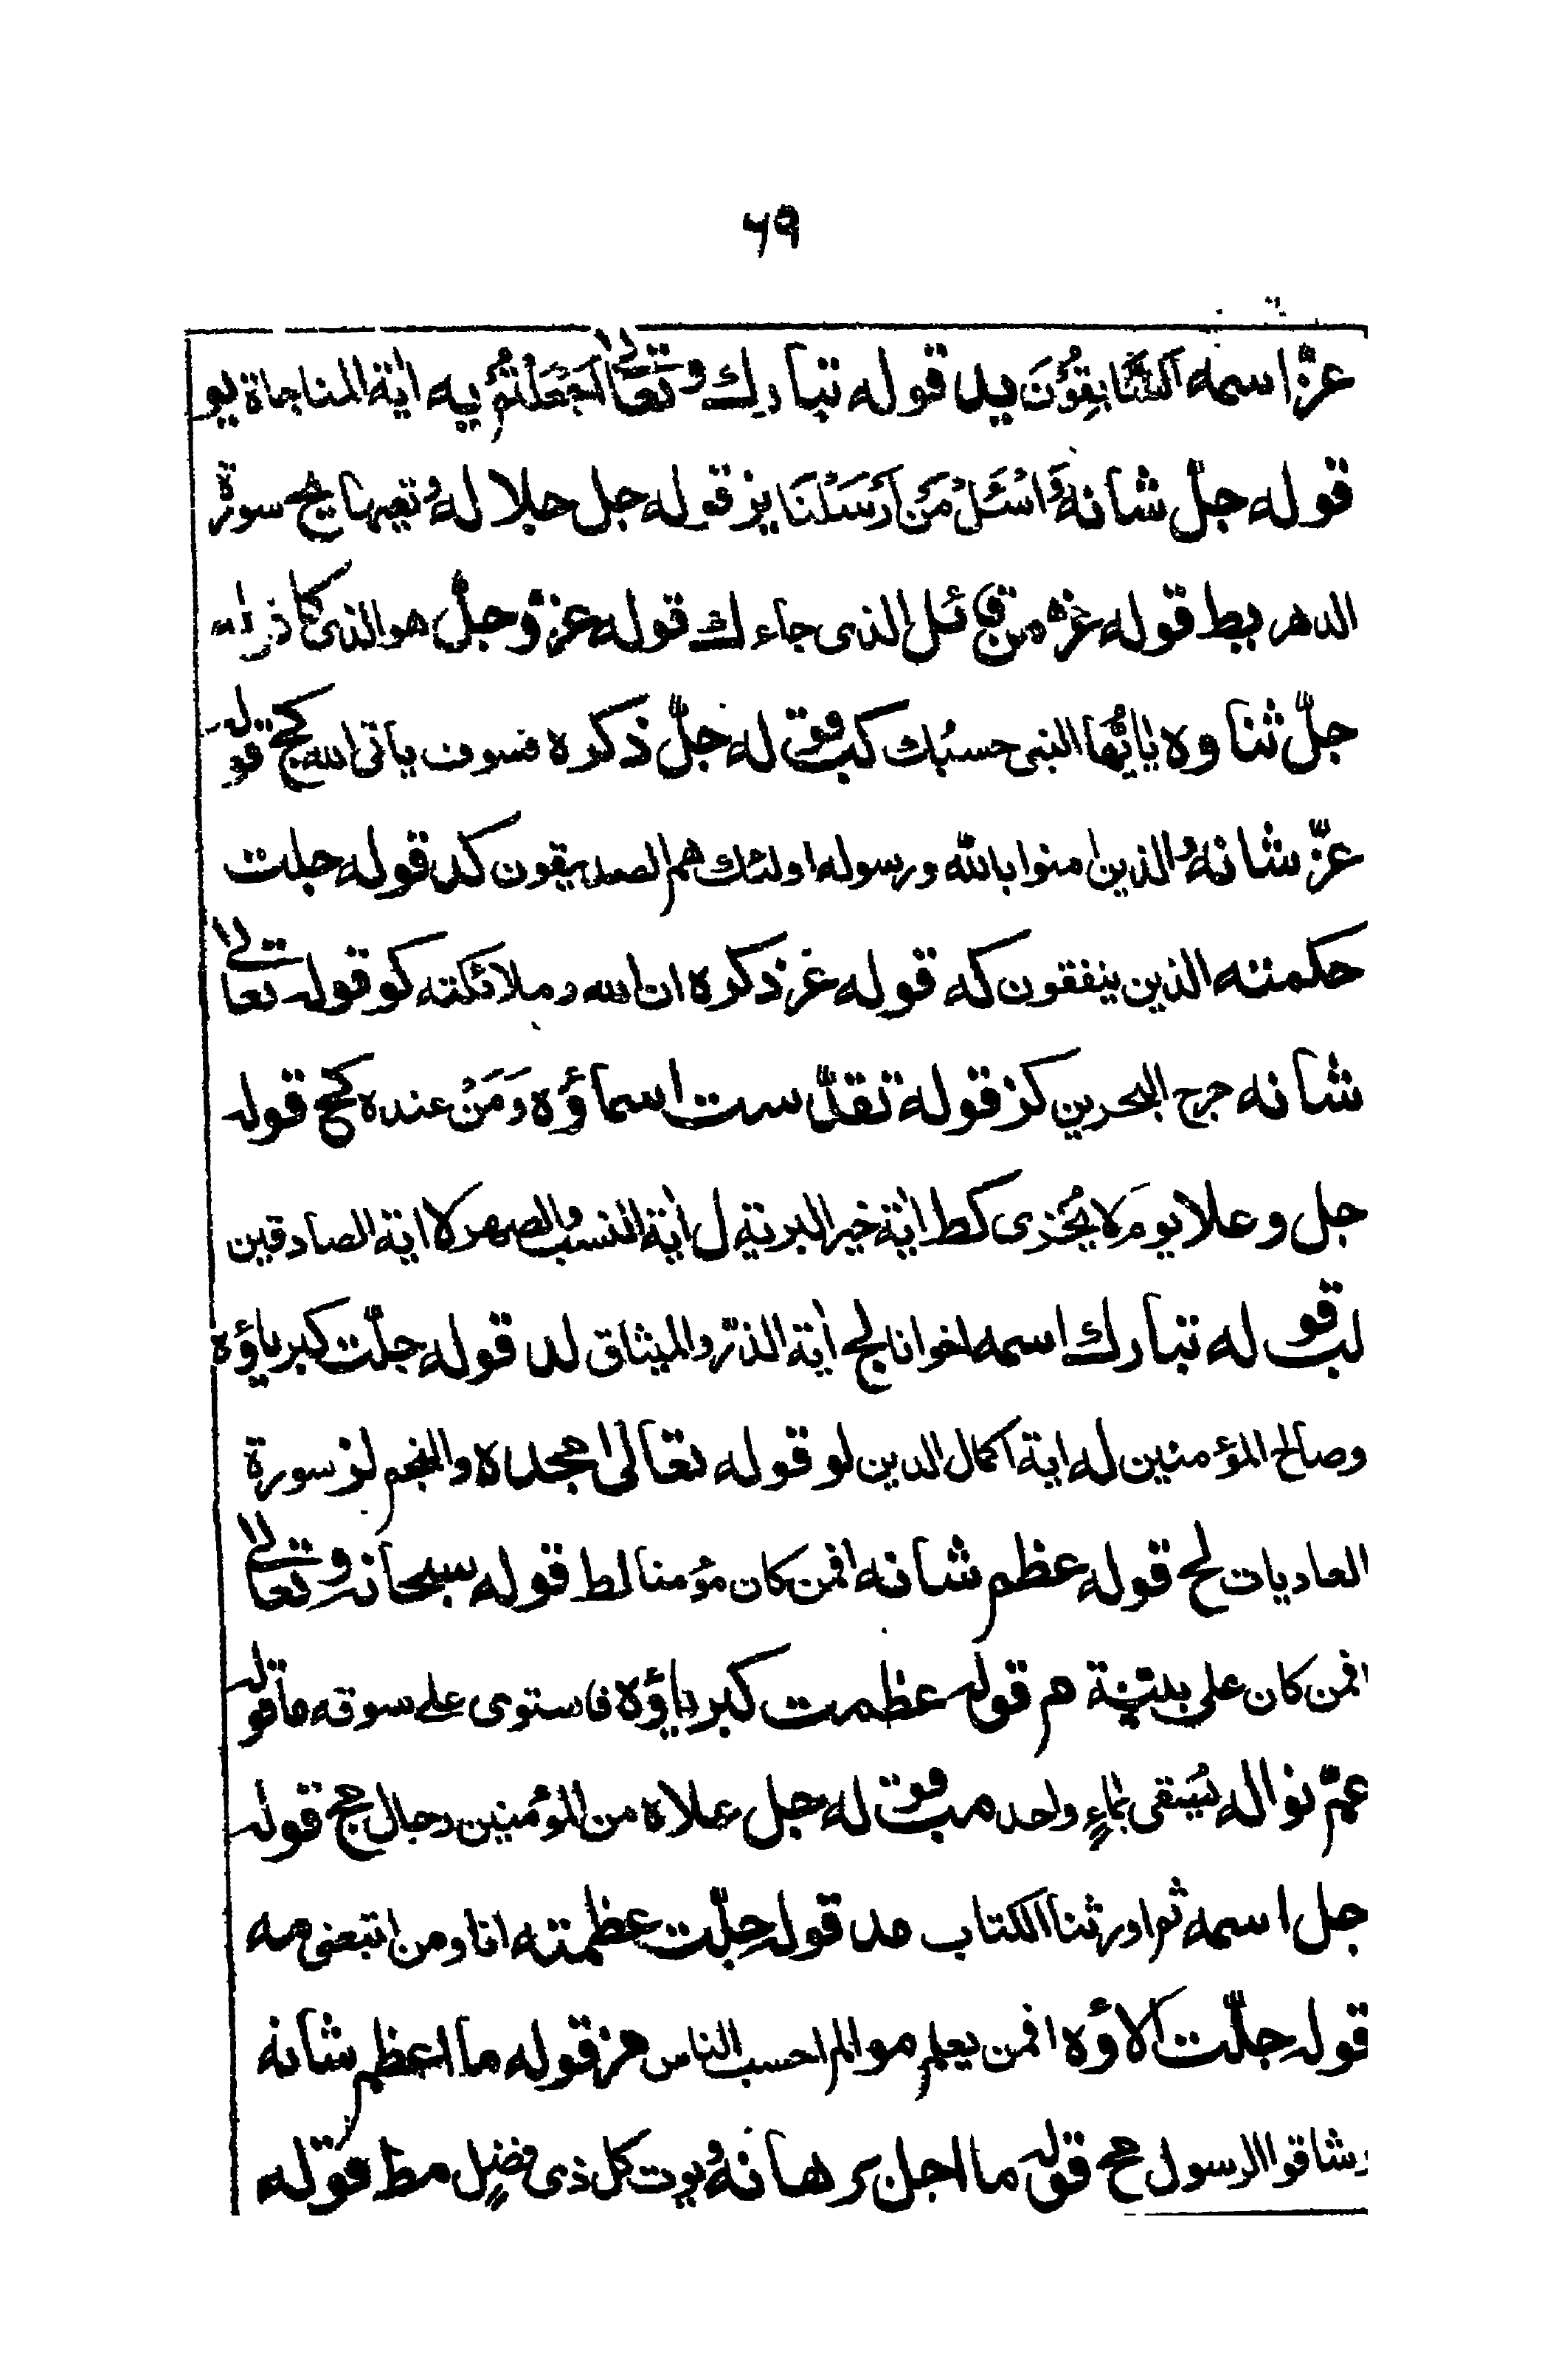 ٦٩
عزّ اسمه السَّابِقُوْنَ يد قوله تبارك وتعالى اَجَعَلْتُمْ يه اية المناجاة يو
قوله جلّ شانهُ وَاسْئَلْ مَنْ اَرْسَلْنَا يز قوله جل جلالهُ تعيها يح سورة
الدهر يط قوله عزّ من قائل الذى جاء ك قوله عزّ وجلّ هو الذى
جلّ ثناوه يايُّها النبى حسبُك كب قوله جلّ ذكره فسوف ياتى الله كج قوله
عزّ شانهُ والذين امنوا بالله ورسوله اولئك هم الصديقون كد قوله جلت
حكمته الذين ينفقون كه قوله عز ذكره ان الله وملائكته كو قوله تعالى
شانه مرج البحرين كز قوله تقدّست اسماؤه وَمَنْ عنده كح قوله
جل وعلا يومَ لا يُخزى كط اية خير البرية ل اية النسب والصهر لا اية الصادقين
لب قوله تبارك اسمه اخوانا لج اية الذرّ والميثاق لد قوله جلّت كبرياؤه
وصالح المؤمنين له اية اكمال الدين لو قوله تعالى مجده والنجم لز سورة
العاديات لح قوله عظم شانه افمن كان مؤمنا لط قوله سبحانه وتعالى
افمن كان على بيّنة م قوله عظمت كبرياؤه فاستوى على سوقه ما قوله
عمّ نواله يُسقى بماءٍ واحد مب قوله جل علاه من المؤمنين رجال مج قوله
جل اسمه ثم اورثنا الكتاب مد قوله جلّت عظمته انا ومن اتبعنى مه
قوله جلّت الاؤه افمن يعلم مو الم احسب الناس مز قوله ما اعظم شانه
وشاقوا الرسول مح قوله ما اجل برهانهُ ويوت كل ذى فضلٍ مط قوله